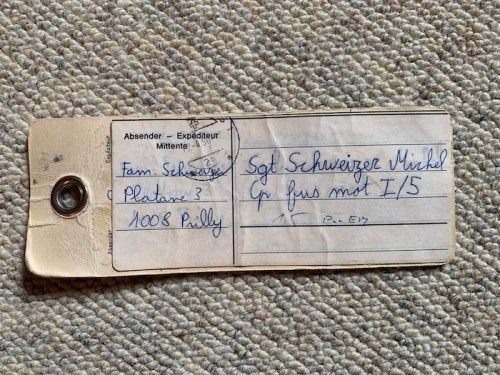 Absender – Expéditeur
Mittente
Fam. Schweizer
Platane 3
1008 Prilly
Sgt Schweizer Michel
Cp fus mot I/5
15